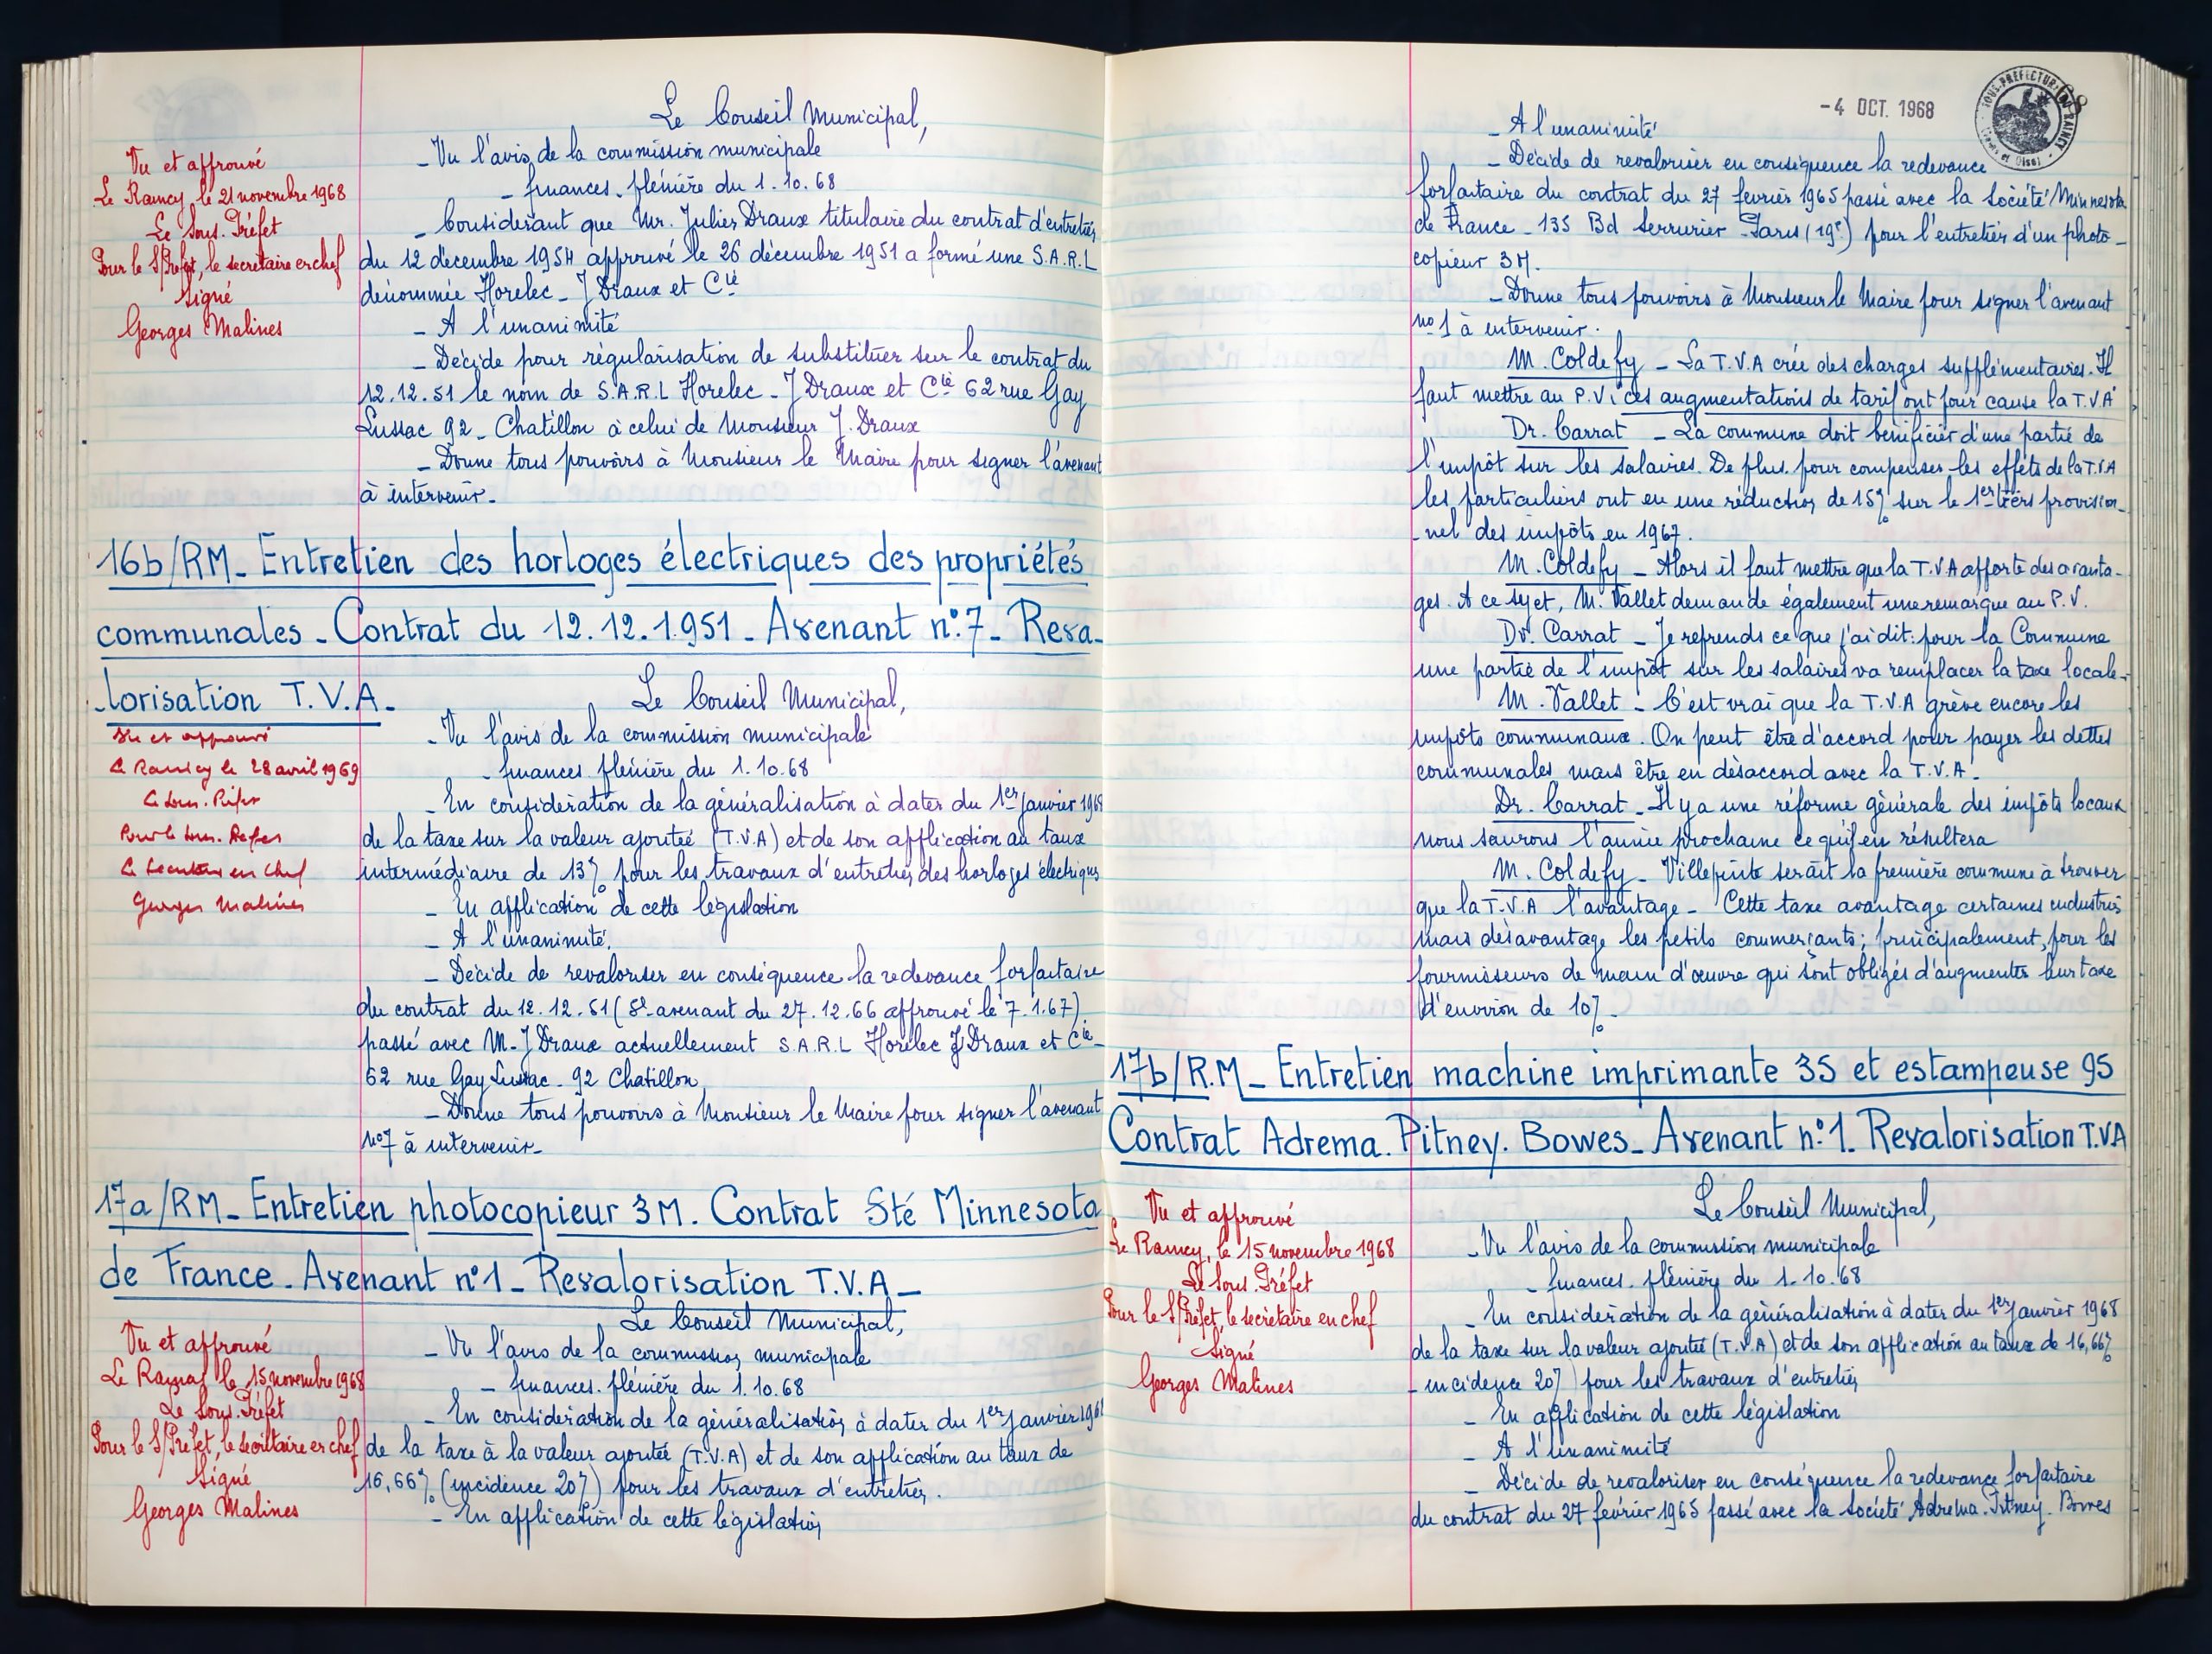 Le Conseil Municipal,
- Vu l'avis de la commission municipale
- finances plénière du 1.10.68
- Considérant que Mr. Julien Draux titulaire du contrat d'entretien
du 12 décembre 1954 approuvé le 26 décembre 1951 a formé une S.A.R.L
dénommée Horelec - J Draux et Cie
- A l'unanimité
- Décide pour régularisation de substituer sur le contrat du
12.12.51 le nom de S.A.R.L Horelec - J Draux et Cie 62 rue Gay
Lussac 92 - Chatillon à celui de Monsieur J. Draux
- Donne tous pouvoirs à Monsieur le Maire pour signer l'avenant
à intervenir -
Vu et approuvé
Le Raincy, le 21 novembre 1968
Le Sous-Préfet
Pour le S/Préfet, le secrétaire en chef
Signé
Georges Malines
16b/RM - Entretien des horloges électriques des propriétés
communales - Contrat du 12.12.1951 - Avenant n°7 - Reva-
-lorisation T.V.A -
Le Conseil Municipal,
- Vu l'avis de la commission municipale
- finances plénière du 1.10.68
- En considération de la généralisation à dater du 1er janvier 1968
de la taxe sur la valeur ajoutée (T.V.A) et de son application au taux
intermédiaire de 13% pour les travaux d'entretien des horloges électriques
- En application de cette législation
- A l'unanimité,
- Décide de revaloriser en conséquence la redevance forfaitaire
du contrat du 12.12.51 (5e avenant du 27.12.66 approuvé le 7.1.67)
passé avec M. J Draux actuellement S.A.R.L Horelec J Draux et Cie -
62 rue Gay Lussac - 92 Chatillon
- Donne tous pouvoirs à Monsieur le Maire pour signer l'avenant
n°7 à intervenir -
Vu et approuvé
Le Raincy le 28 avril 1969
Le Sous-Préfet
Pour le Sous-Préfet
Le Secrétaire en Chef
Georges Malines
17a/RM - Entretien photocopieur 3M. Contrat Sté Minnesota
de France - Avenant n°1 - Revalorisation T.V.A -
Le Conseil Municipal,
- Vu l'avis de la commission municipale
- finances plénière du 1.10.68
- En considération de la généralisation à dater du 1er janvier 1968
de la taxe à la valeur ajoutée (T.V.A) et de son application au taux de
16,66% (incidence 20%) pour les travaux d'entretien.
- En application de cette législation
Vu et approuvé
Le Raincy le 15 novembre 1968
Le Sous-Préfet
Pour le S/Préfet, le secrétaire en chef
Signé
Georges Malines
-4 OCT. 1968
68
SOUS-PREFECTURE DU RAINCY
- A l'unanimité
- Décide de revaloriser en conséquence la redevance
forfaitaire du contrat du 27 février 1965 passé avec la société Minnesota
de France - 135 Bd Serrurier - Paris (19e) pour l'entretien d'un photo-
copieur 3M.
- Donne tous pouvoirs à Monsieur le Maire pour signer l'avenant
n°1 à intervenir.
M. Coldefy - La T.V.A crée des charges supplémentaires. Il
faut mettre au P.V : ces augmentations de tarif ont pour cause la T.V.A
Dr. Carrat - La commune doit bénéficier d'une partie de
l'impôt sur les salaires. De plus pour compenser les effets de la T.V.A
les particuliers ont eu une réduction de 15% sur le 1er tiers provision-
-nel des impôts en 1967.
M. Coldefy - Alors il faut mettre que la T.V.A apporte des avanta-
ges. A ce sujet, M. Vallet demande également une remarque au P.V.
Dr. Carrat - Je reprends ce que j'ai dit : pour la Commune
une partie de l'impôt sur les salaires va remplacer la taxe locale -
M. Vallet - C'est vrai que la T.V.A grève encore les
impôts communaux. On peut être d'accord pour payer les dettes
communales mais être en désaccord avec la T.V.A -
Dr. Carrat - Il y a une réforme générale des impôts locaux
nous saurons l'année prochaine ce qu'il en résultera
M. Coldefy - Villepinte serait la première commune à trouver
que la T.V.A l'avantage - Cette taxe avantage certaines industries
mais désavantage les petits commerçants ; principalement, pour les
fournisseurs de main d'œuvre qui sont obligés d'augmenter leur taxe
d'environ de 10% -
17b/R.M - Entretien machine imprimante 35 et estampeuse 95
Contrat Adrema. Pitney. Bowes - Avenant n°1 - Revalorisation T.V.A
Le Conseil Municipal,
- Vu l'avis de la commission municipale
- finances. plénière du 1.10.68
- En considération de la généralisation à dater du 1er janvier 1968
de la taxe sur la valeur ajoutée (T.V.A) et de son application au taux de 16,66%
- incidence 20%) pour les travaux d'entretien
- En application de cette législation
- A l'unanimité
- Décide de revaloriser en conséquence la redevance forfaitaire
du contrat du 27 février 1965 passé avec la société Adrema. Pitney. Bowes
Vu et approuvé
Le Raincy, le 15 novembre 1968
Le Sous-Préfet
Pour le S/Préfet, le secrétaire en chef
Signé
Georges Malines